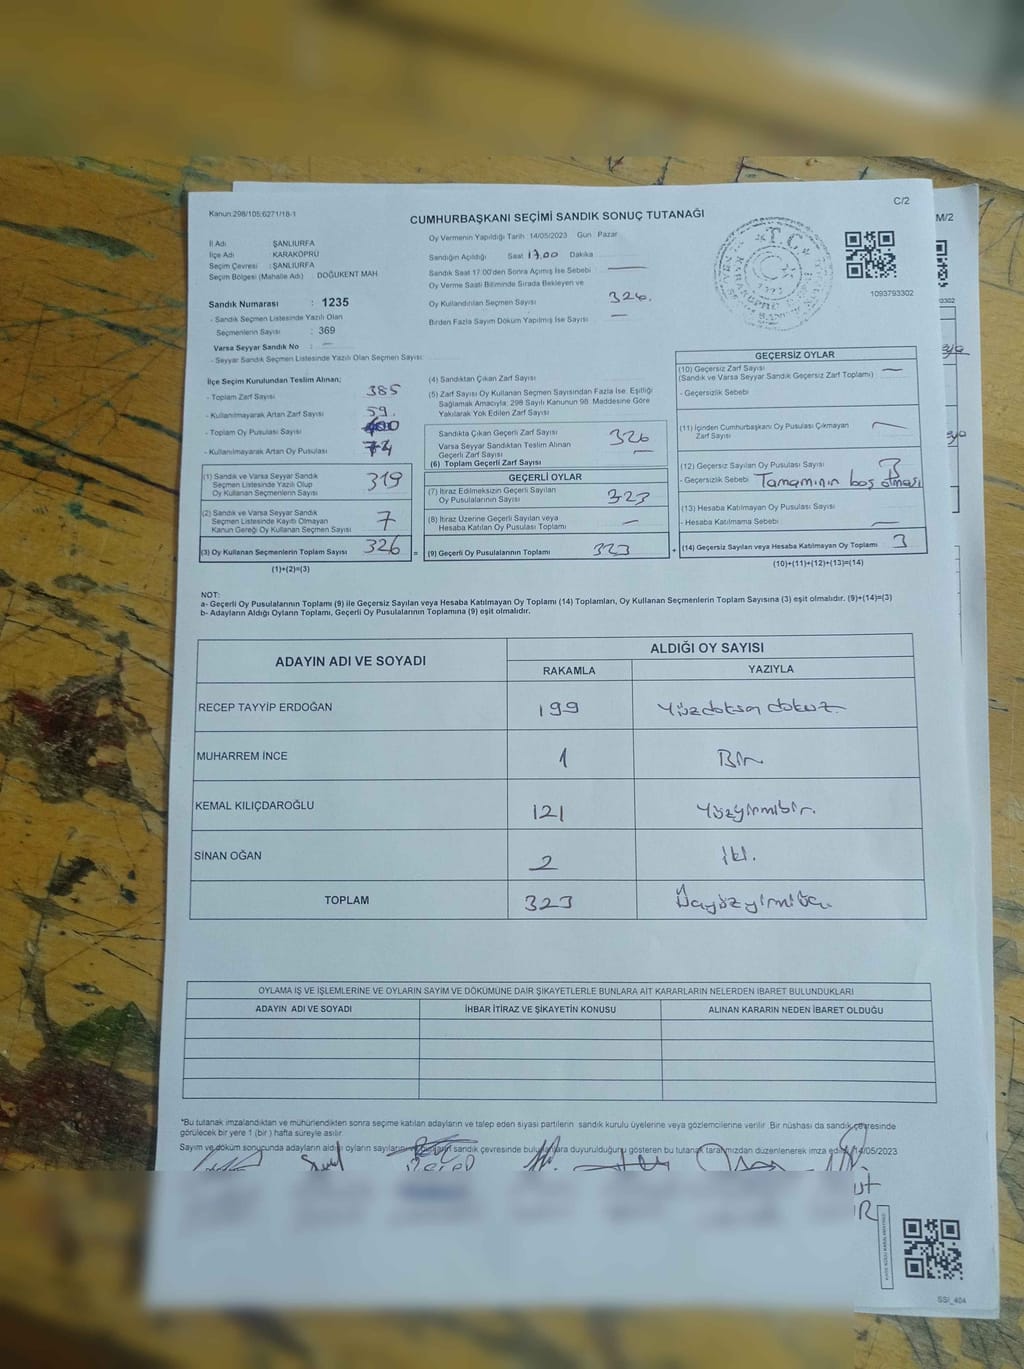 Kanun:298/105;6271/18-1
C/2
M/2
CUMHURBAŞKANI SEÇİMİ SANDIK SONUÇ TUTANAĞI
İl Adı : ŞANLIURFA
İlçe Adı : KARAKÖPRÜ
Seçim Çevresi : ŞANLIURFA
Seçim Bölgesi (Mahalle Adı) : DOĞUKENT MAH
Sandık Numarası : 1235
- Sandık Seçmen Listesinde Yazılı Olan
Seçmenlerin Sayısı : 369
Varsa Seyyar Sandık No : —
- Seyyar Sandık Seçmen Listesinde Yazılı Olan Seçmen Sayısı :
Oy Vermenin Yapıldığı Tarih : 14/05/2023 Gün : Pazar
Sandığın Açıldığı Saat 17.00 Dakika
Sandık Saat 17.00'den Sonra Açılmış İse Sebebi —
Oy Verme Saati Bitiminde Sırada Bekleyen ve
Oy Kullandırılan Seçmen Sayısı 326.
Birden Fazla Sayım Döküm Yapılmış İse Sayısı —
T.C.
1093793302
İlçe Seçim Kurulundan Teslim Alınan;
- Toplam Zarf Sayısı 385
- Kullanılmayarak Artan Zarf Sayısı 59.
- Toplam Oy Pusulası Sayısı 400
- Kullanılmayarak Artan Oy Pusulası 74
(1) Sandık ve Varsa Seyyar Sandık
Seçmen Listesinde Yazılı Olup
Oy Kullanan Seçmenlerin Sayısı 319
(2) Sandık ve Varsa Seyyar Sandık
Seçmen Listesinde Kayıtlı Olmayan
Kanun Gereği Oy Kullanan Seçmen Sayısı 7
(3) Oy Kullanan Seçmenlerin Toplam Sayısı 326 =
(1)+(2)=(3)
(4) Sandıktan Çıkan Zarf Sayısı
(5) Zarf Sayısı Oy Kullanan Seçmen Sayısından Fazla İse, Eşitliği
Sağlamak Amacıyla; 298 Sayılı Kanunun 98. Maddesine Göre
Yakılarak Yok Edilen Zarf Sayısı
Sandıkta Çıkan Geçerli Zarf Sayısı 326
Varsa Seyyar Sandıktan Teslim Alınan
Geçerli Zarf Sayısı —
(6) Toplam Geçerli Zarf Sayısı
GEÇERLİ OYLAR
(7) İtiraz Edilmeksizin Geçerli Sayılan
Oy Pusulalarının Sayısı 323
(8) İtiraz Üzerine Geçerli Sayılan veya
Hesaba Katılan Oy Pusulası Toplamı —
(9) Geçerli Oy Pusulalarının Toplamı 323 +
GEÇERSİZ OYLAR
(10) Geçersiz Zarf Sayısı —
(Sandık ve Varsa Seyyar Sandık Geçersiz Zarf Toplamı)
- Geçersizlik Sebebi
(11) İçinden Cumhurbaşkanı Oy Pusulası Çıkmayan
Zarf Sayısı —
(12) Geçersiz Sayılan Oy Pusulası Sayısı 3
- Geçersizlik Sebebi Tamamının boş olması
(13) Hesaba Katılmayan Oy Pusulası Sayısı
- Hesaba Katılmama Sebebi —
(14) Geçersiz Sayılan veya Hesaba Katılmayan Oy Toplamı 3
(10)+(11)+(12)+(13)=(14)
NOT:
a- Geçerli Oy Pusulalarının Toplamı (9) ile Geçersiz Sayılan veya Hesaba Katılmayan Oy Toplamı (14) Toplamları, Oy Kullanan Seçmenlerin Toplam Sayısına (3) eşit olmalıdır. (9)+(14)=(3)
b- Adayların Aldığı Oyların Toplamı, Geçerli Oy Pusulalarının Toplamına (9) eşit olmalıdır.
ADAYIN ADI VE SOYADI ALDIĞI OY SAYISI
RAKAMLA YAZIYLA
RECEP TAYYİP ERDOĞAN 199 Yüzdoksan dokuz
MUHARREM İNCE 1 Bir
KEMAL KILIÇDAROĞLU 121 Yüzyirmibir.
SİNAN OĞAN 2 iki.
TOPLAM 323 Üçyüzyirmiüç
OYLAMA İŞ VE İŞLEMLERİNE VE OYLARIN SAYIM VE DÖKÜMÜNE DAİR ŞİKAYETLERLE BUNLARA AİT KARARLARIN NELERDEN İBARET BULUNDUKLARI
ADAYIN ADI VE SOYADI İHBAR İTİRAZ VE ŞİKAYETİN KONUSU ALINAN KARARIN NEDEN İBARET OLDUĞU
*Bu tutanak imzalandıktan ve mühürlendikten sonra seçime katılan adayların ve talep eden siyasi partilerin sandık kurulu üyelerine veya gözlemcilerine verilir. Bir nüshası da sandık çevresinde
görülecek bir yere 1 (bir) hafta süreyle asılır.
Sayım ve döküm sonucunda adayların aldığı oyların sayılarını sandık çevresinde bulunanlara duyurulduğunu gösteren bu tutanak tarafımızdan düzenlenerek imza edildi. 14/05/2023
SSİ_404